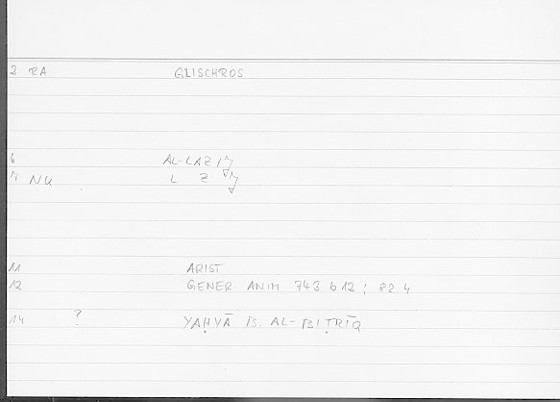 2 RA GLISCHROS
6 AL-LAZIǦ
7 NU L Z Ǧ
11 ARIST
12 GENER ANIM 743 b 12 ; 82.4
14 ? YAḤYĀ B. AL-BIṬRĪQ